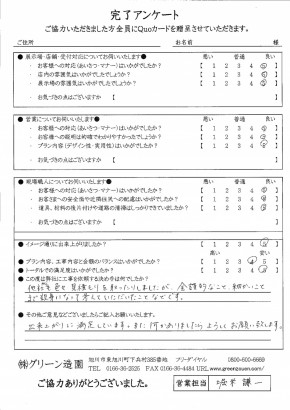 完了アンケート
ご協力いただきました方全員にQuoカードを贈呈させていただきます。
ご住所 お名前 様
●展示場・店舗・受付対応についてお伺いいたします● 悪い 普通 良い
・お客様への対応(あいさつ・マナー)はいかがでしたか? 【 1 2 3 4 5 】
・店内の雰囲気はいかがでしたでしょうか? 【 1 2 3 4 5 】
・展示場の雰囲気はいかがでしたか? 【 1 2 3 4 5 】
・お気づきの点はございますか
●営業についてお伺いいたします● 悪い 普通 良い
・お客様への対応(あいさつ・マナー)はいかがでしたか? 【 1 2 3 4 5 】
・お客様への説明は的確でわかりやすかったでしょうか? 【 1 2 3 4 5 】
・プラン内容(デザイン性・実用性)はいかがですか? 【 1 2 3 4 5 】
・お気づきの点はございますか
●現場職人についてお伺いいたします● 悪い 普通 良い
・お客様への対応(あいさつ・マナー)はいかがでしたか? 【 1 2 3 4 5 】
・お客さまへの安全面や近隣住民への配慮はいかがですか? 【 1 2 3 4 5 】
・道具、材料の後片付けや道路の清掃はしっかりできていましたか? 【 1 2 3 4 5 】
・お気づきの点はございますか
●イメージ通りに出来上がりましたか? 【 1 2 3 4 5 】
●プラン内容、工事内容と金額のバランスはいかがですか? 【 1 2 3 4 5 】
●トータルでの満足度はいかがでしたか? 【 1 2 3 4 5 】
●この度弊社に工事を依頼する決め手は何ですか?
他社含む 見積もりを とりましたが、金額的なこと、細かいこと
まで 親身になって考えていただいたことなどです。
●その他ご意見などございましたらご記入お願いいたします。
出来上がりに満足しています。また何かありましたらよろしくお願い致します。
㈱グリーン造園
旭川市東旭川町下兵村385番地 フリーダイヤル 0800-600-6669
TEL 0166-36-2525 FAX 0166-36-4484 URL www.greenzouen.com/
ご協力ありがとうございました。 営業担当 坂井 謙一